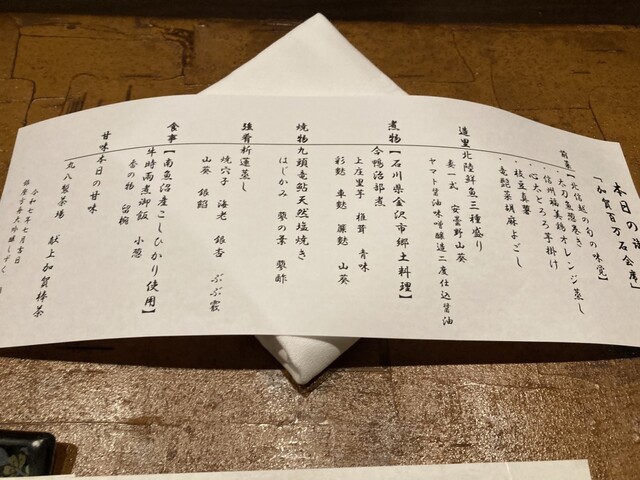 本日の
「加賀百万石会席」
前菜【北信越の旬の味覚】
・太刀魚葱巻き
・信州福美鶏オレンジ蒸し
・心太とろろ芋掛け
・枝豆真薯
・竜髭菜胡麻よごし
造里 北陸鮮魚三種盛り
妻一式 安曇野山葵
ヤマト醤油味噌醸造二度仕込醤油
煮物【石川県金沢市郷土料理】
合鴨治部煮
上庄里芋 椎茸 青味
彩麩 車麩 簾麩 山葵
焼物 九頭竜鮎天然塩焼き
はじかみ 蓼の葉 蓼酢
強肴 新蓮蒸し
焼穴子 海老 銀杏 ぶぶ霰
山葵 銀餡
食事【南魚沼産こしひかり使用】
牛時雨煮御飯 小葱
香の物 留椀
甘味 本日の甘味
丸八製茶場 献上加賀棒茶
令和七年七月吉日